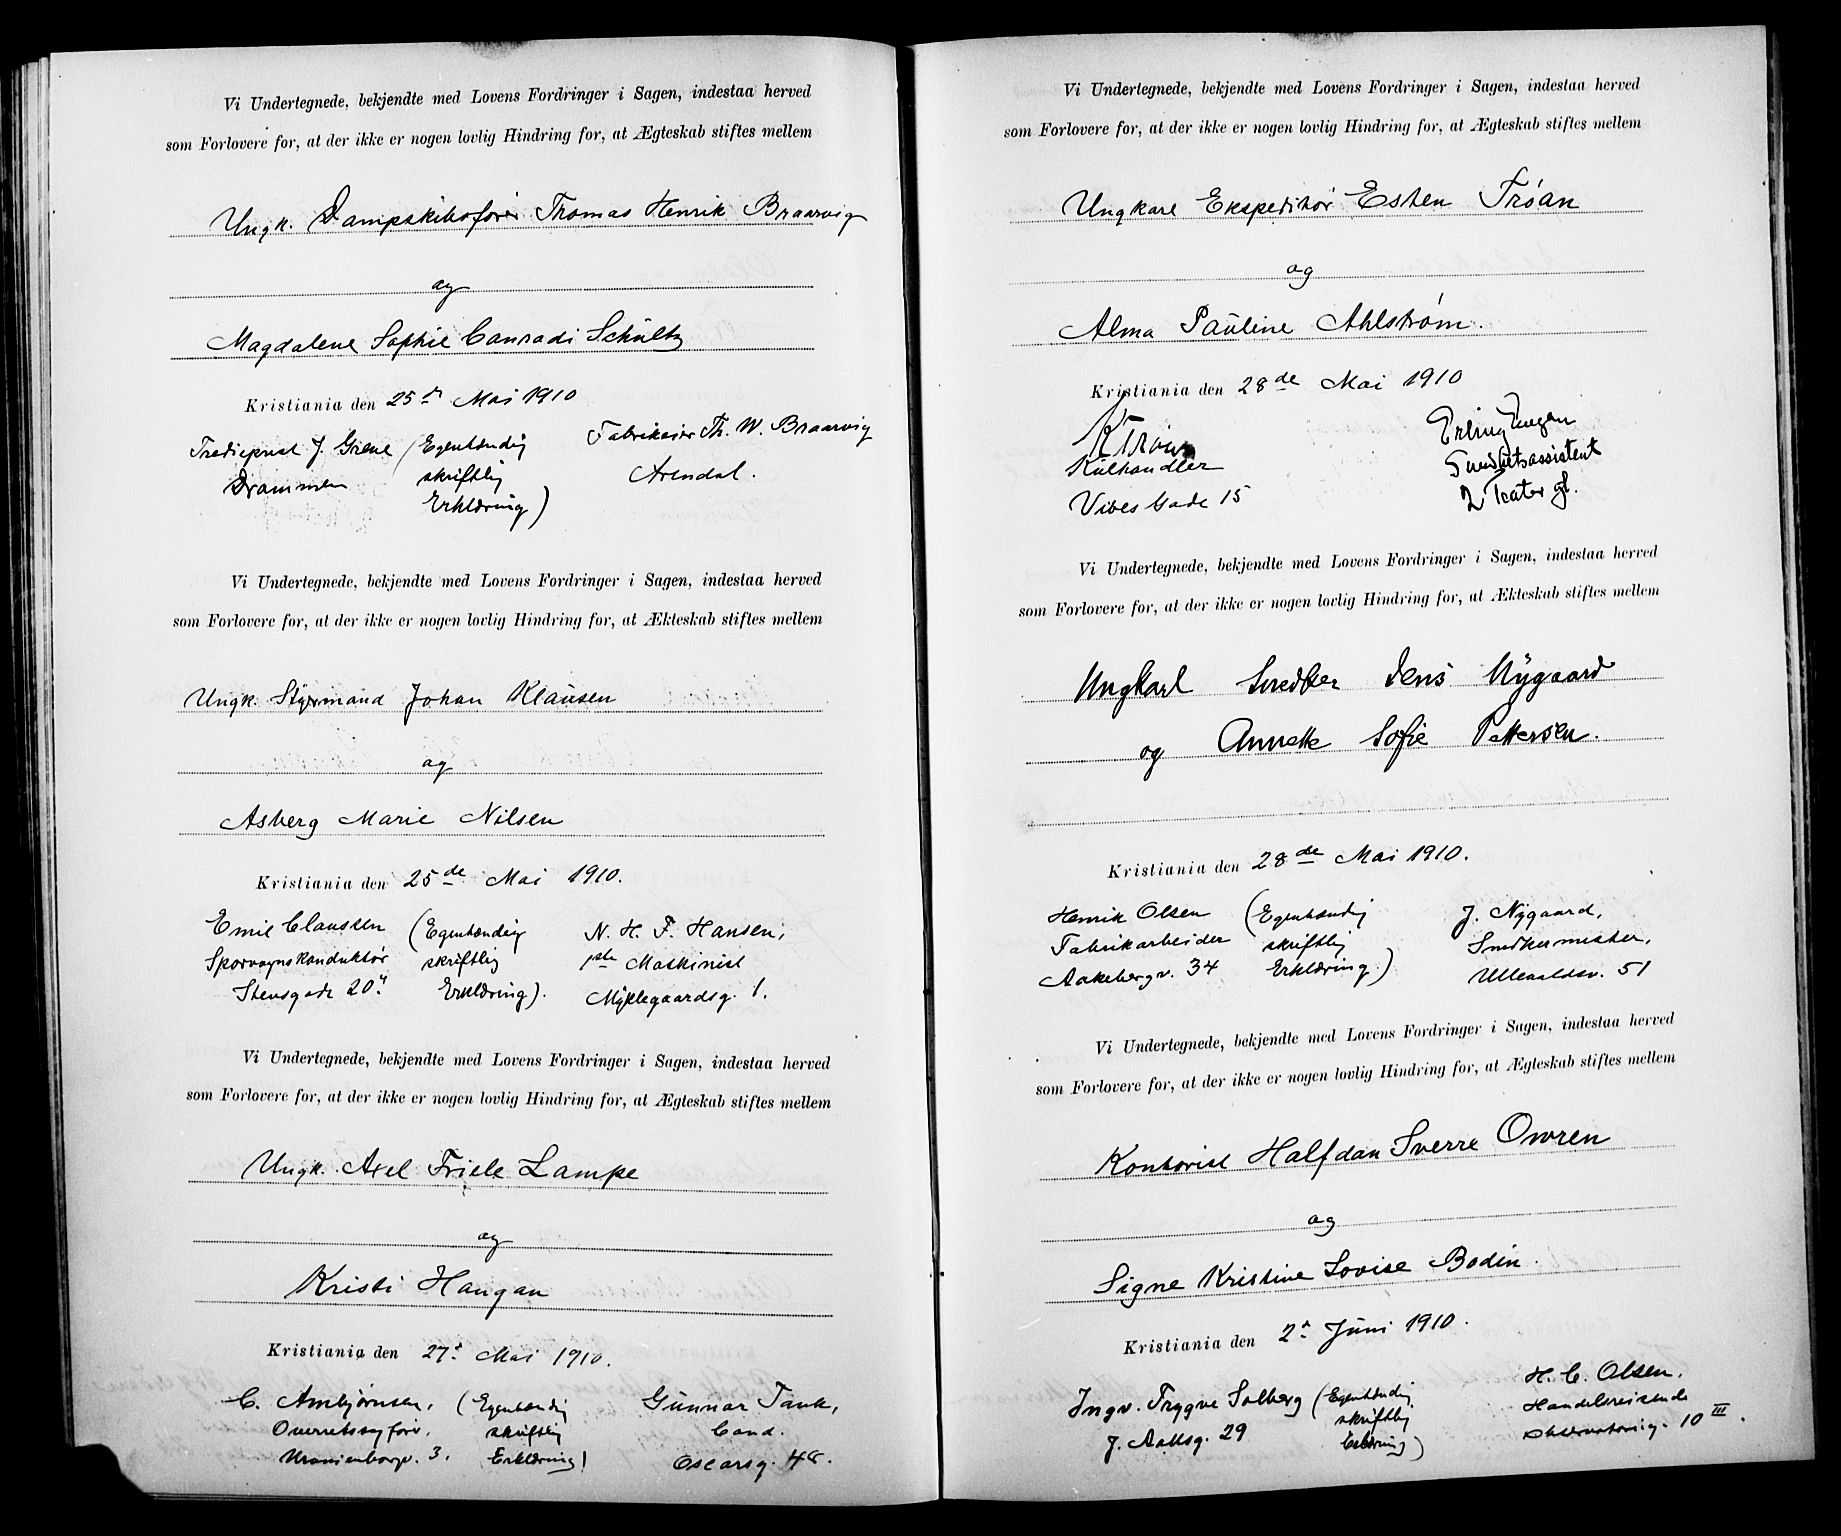 Vi Undertegnede, bekjendte med Lovens Fordringer i Sagen, indestaa herved
som Forlovere for, at der ikke er nogen lovlig Hindring for, at Ægteskab stiftes mellem
Ungk. Dampskibsfører Thomas Henrik Braarvig
og
Magdalene Sophie Conradi Schultz
Kristiania den 25de Mai 1910
J. Grene (Egenhændig Fabrikeier Th. W. Braarvig
Drammen skriftlig Arendal.
Erklæring)
Vi Undertegnede, bekjendte med Lovens Fordringer i Sagen, indestaa herved
som Forlovere for, at der ikke er nogen lovlig Hindring for, at Ækteskab stiftes mellem
Ungk. Styrmand Johan Klausen
og
Asberg Marie Nilsen
Kristiania den 25de Mai 1910.
Emil Claussen (Egenhændig N. H. F. Hansen,
Sporvognskonduktør skriftlig 1ste Maskinist
Stensgade 20II Erklæring). Myklegaardsg. 1.
Vi Undertegnede, bekjendte med Lovens Fordringer i Sagen, indestaa herved
som Forlovere for, at der ikke er nogen lovlig Hindring for, at Ægteskab stiftes mellem
Ungk. Axel Friele Lampe
og
Kristi Haugan
Kristiania den 27d Mai 1910.
C. Ambjørnsen, (Egenhændig Gunnar Tank,
Overretssagfører. skriftlig Cand.
Uranienborgv. 3. Erklæring) Oscarsg. 48.
Vi Undertegnede, bekjendte med Lovens Fordringer i Sagen, indestaa herved
som Forlovere for, at der ikke er nogen lovlig Hindring for, at Ægteskab stiftes mellem
Ungkarl Ekspeditør Esten Trøan
og
Alma Pauline Ahlstrøm.
Kristiania den 28de Mai 1910
Trøan Erling Engen
Kulhandler Sundhetsassistent
Vibes Gade 15 2 Teater gt.
Vi Undertegnede, bekjendte med Lovens Fordringer i Sagen, indestaa herved
som Forlovere for, at der ikke er nogen lovlig Hindring for, at Ækteskab stiftes mellem
Ungkarl Snedker Jens Nygaard
og Annette Sofie Pettersen.
Kristiania den 28de Mai 1910.
Henrik Olsen (Egenhændig J. Nygaard,
Fabrikarbeider skriftlig Snedkermester,
Aakebergv. 34 Erklæring) Ullevaldsv. 51
Vi Undertegnede, bekjendte med Lovens Fordringer i Sagen, indestaa herved
som Forlovere for, at der ikke er nogen lovlig Hindring for, at Ægteskab stiftes mellem
Kontorist Halfdan Sverre Owren
og
Signe Kristine Lovise Bodin.
Kristiania den 2d Juni 1910.
Ingv. Trygve Solberg (Egenhændig H. C. Olsen,
J. Aallsg. 29 skriftlig Handelsreisende
Erklæring) Observatoriig. 10 III.